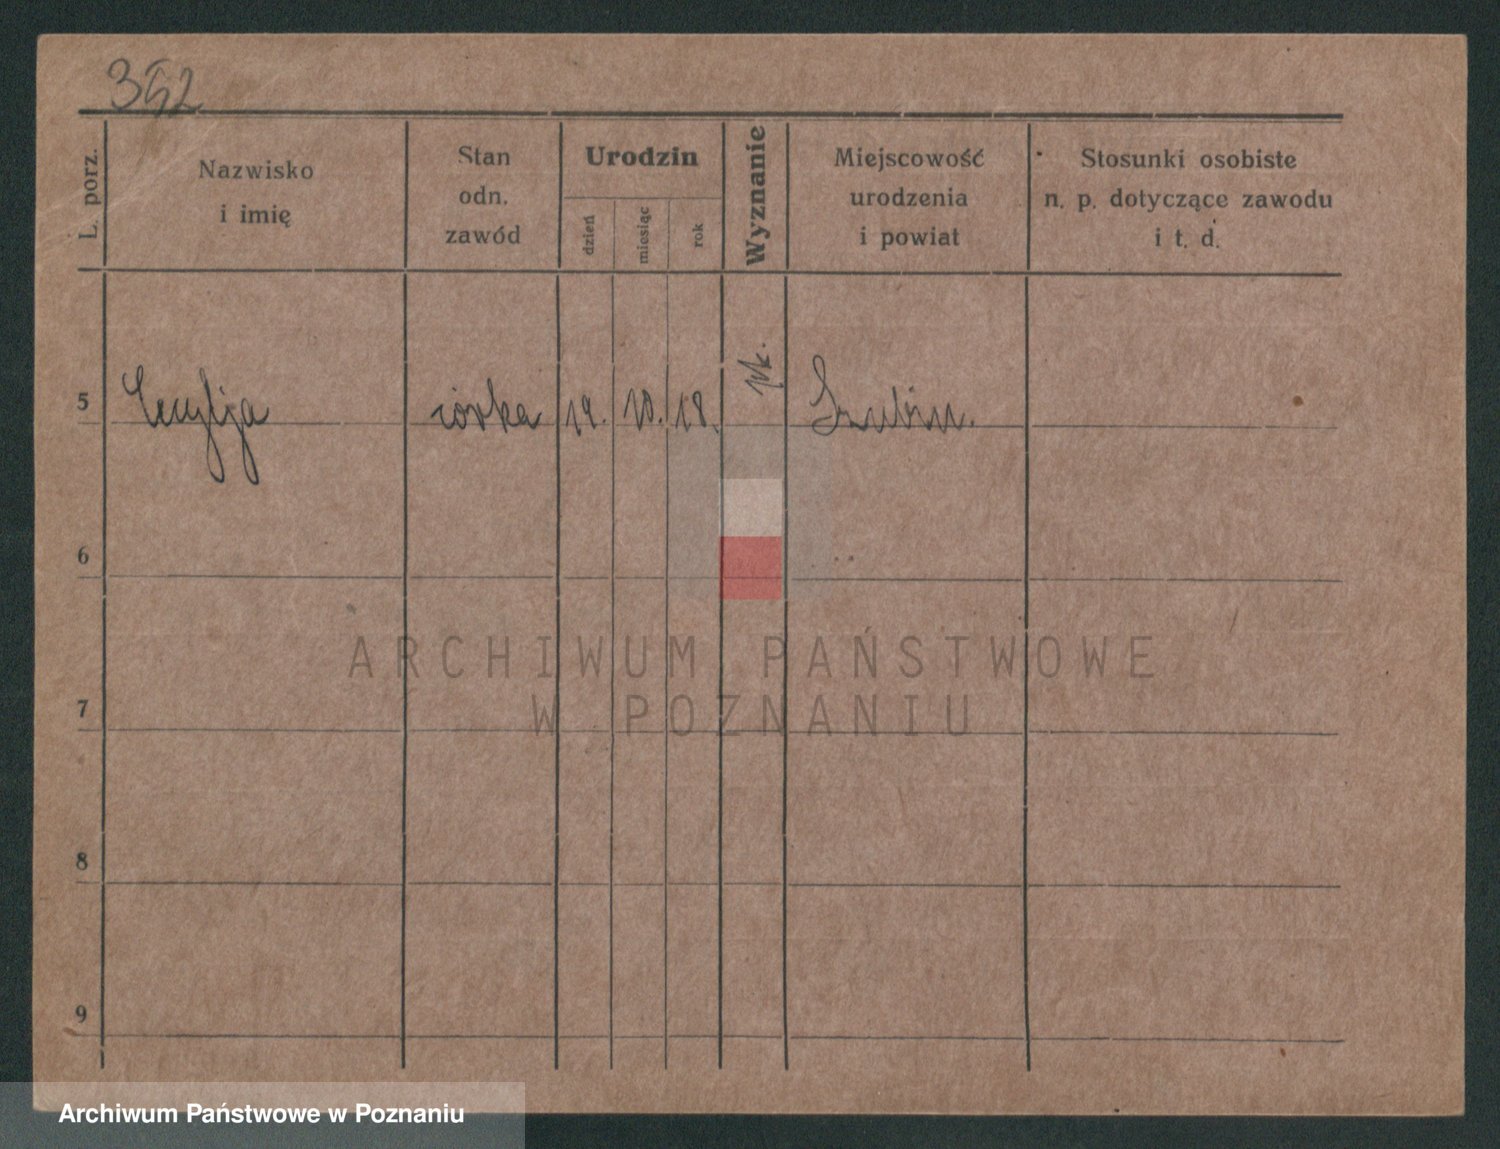 352
L. porz.
Nazwisko
i imię
Stan
odn.
zawód
Urodzin
dzień
miesiąc
rok
Wyznanie
Miejscowość
urodzenia
i powiat
Stosunki osobiste
n. p. dotyczące zawodu
i t. d.
5 Cecylja córka 19. 10. 18. rk. Szubin.
6
7
8
9
ARCHIWUM PAŃSTWOWE
W POZNANIU
Archiwum Państwowe w Poznaniu